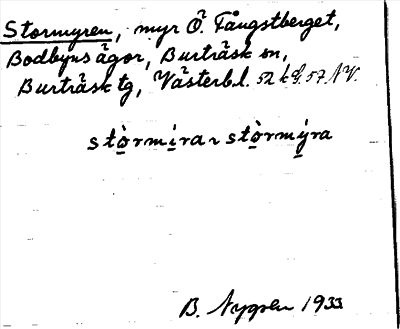 Stormyren, myr Ö. Fångstberget,
Bodbyns ägor, Burträsk sn,
Burträsk tg, Västerb.l. 52 k 57 NV.
stòrmira ~ stòrmýra
B. Nygren 1933